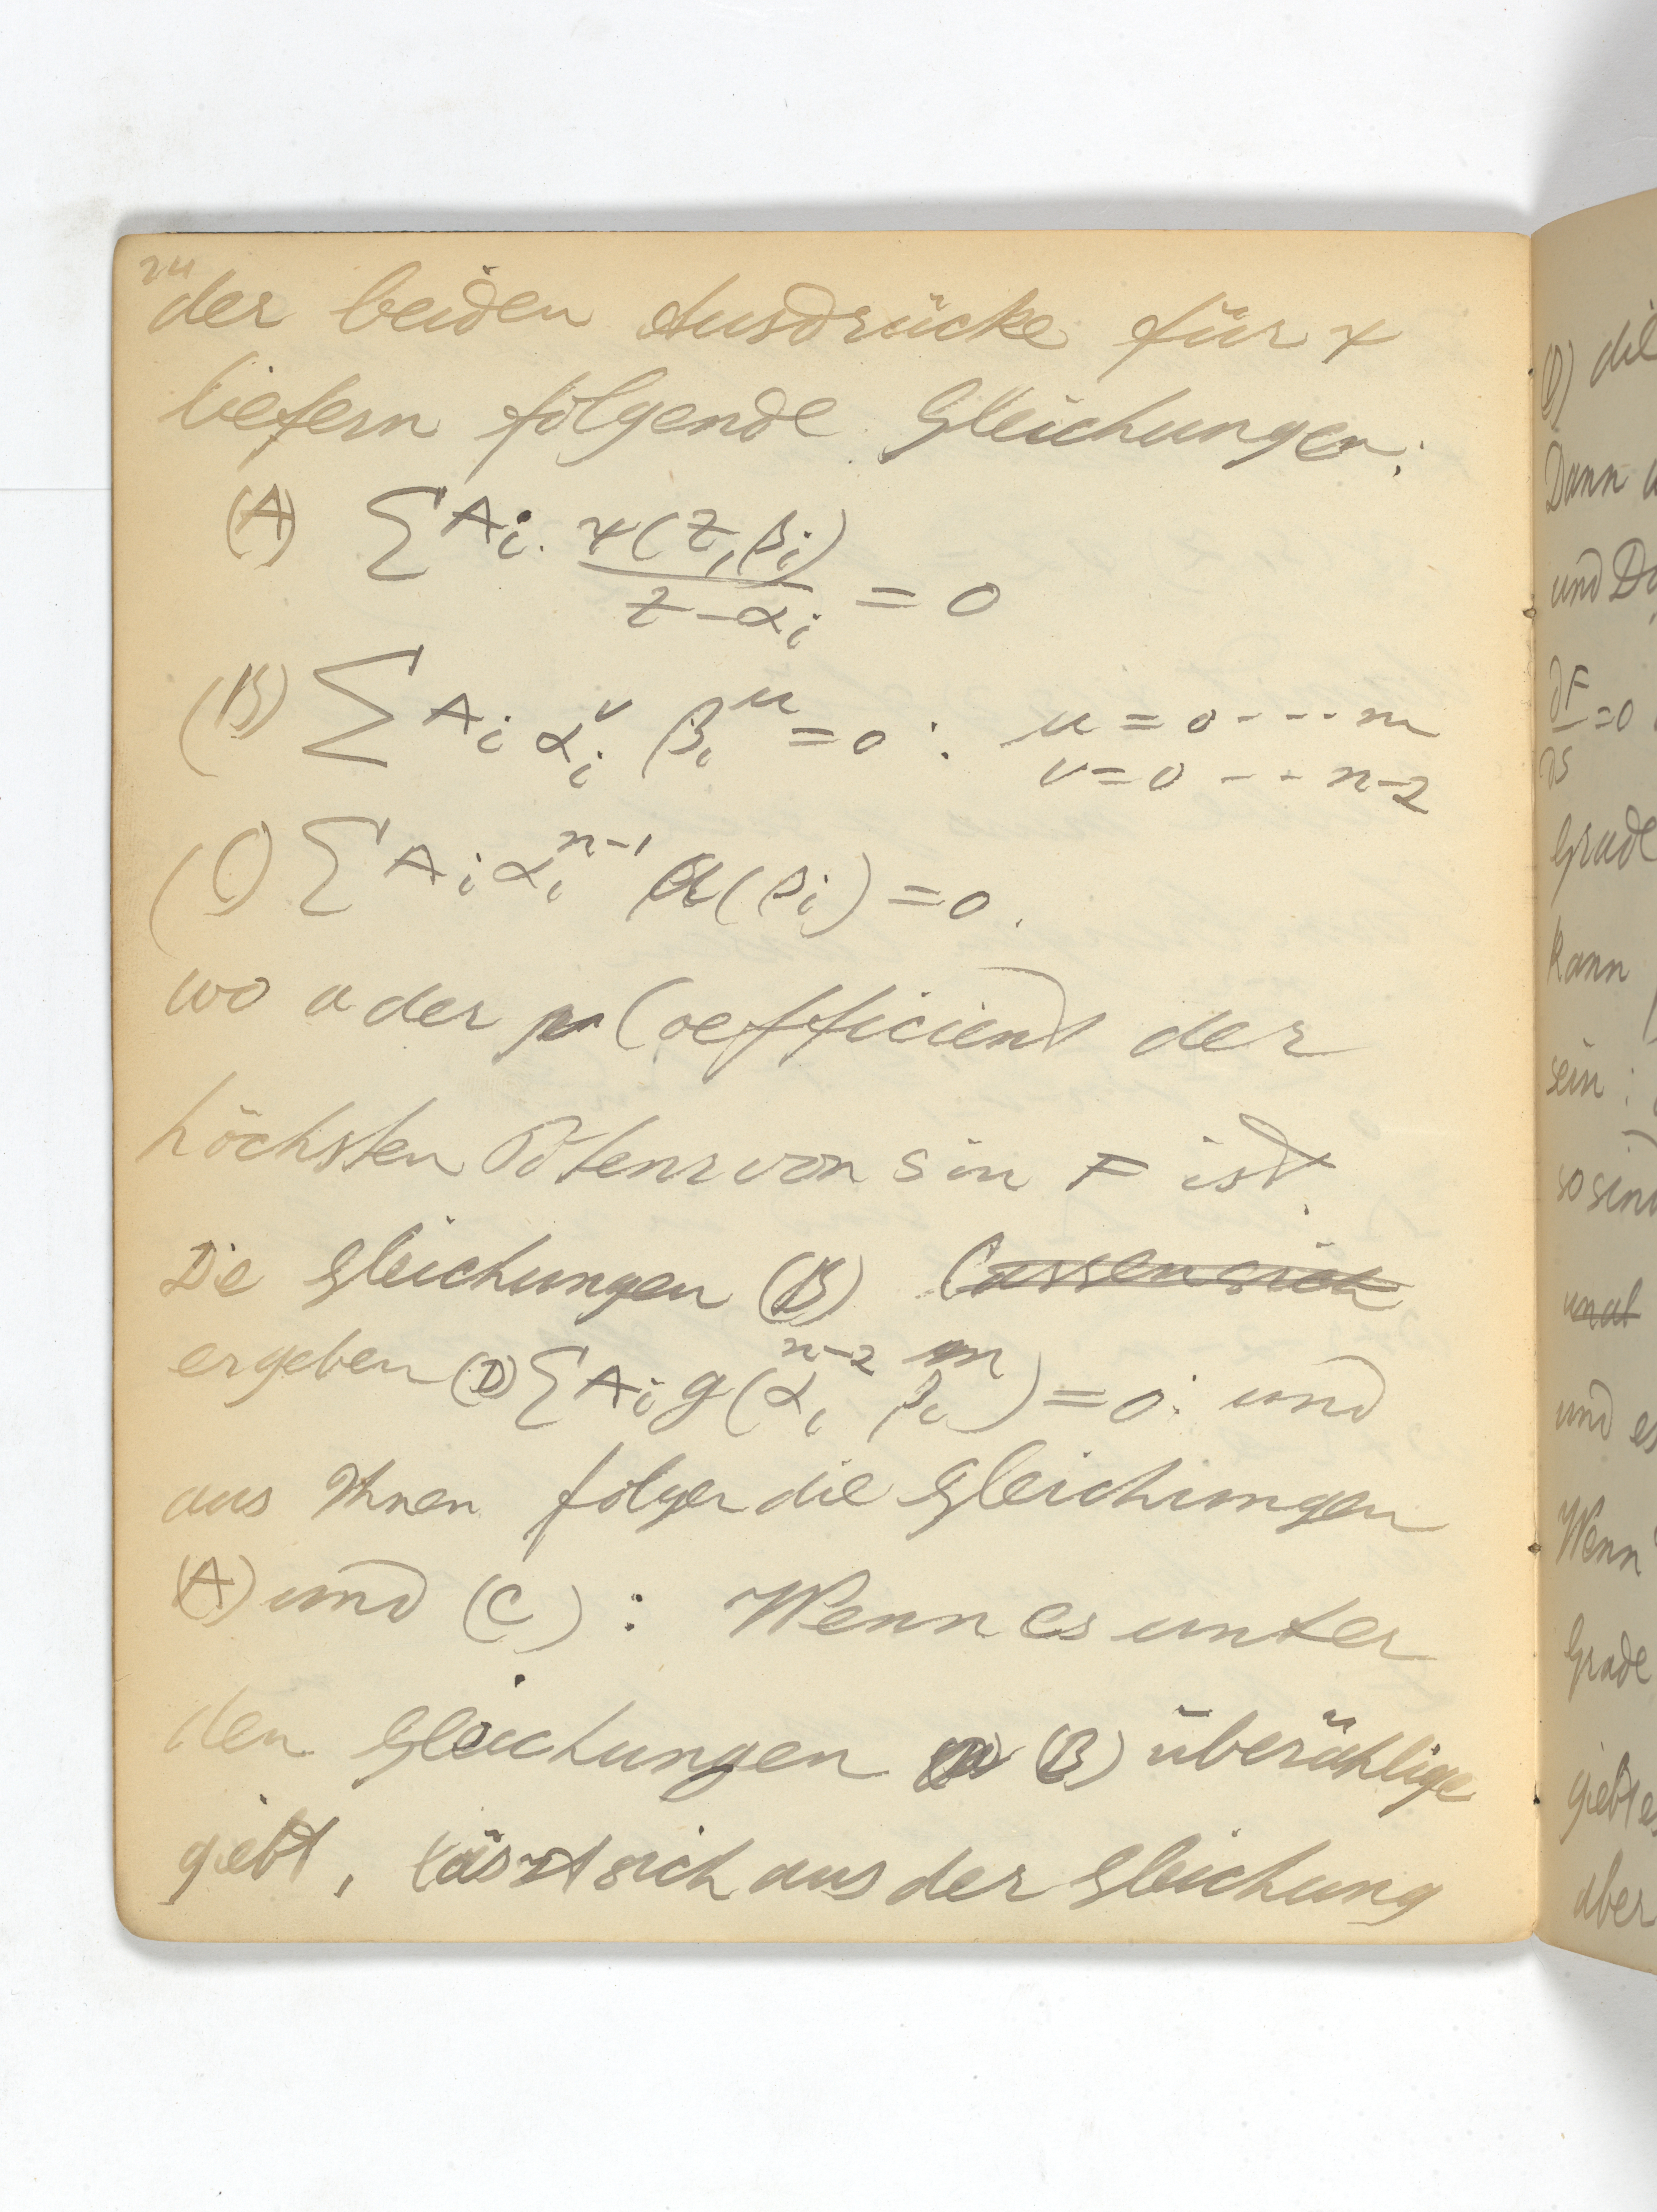 24
der beiden Ausdrücke für ψ
liefern folgende Gleichungen:
(A) ∑ A_i · ψ(z, β_i) / (z − α_i) = 0
(B) ∑ A_i α_i^ν β_i^μ = 0 : μ = 0 - - - - m
ν = 0 - - - n−2
(C) ∑ A_i α_i^{n−1} a(β_i) = 0.
wo a der Coefficient der
höchsten Potenz von s in F ist.
Die Gleichungen (B) lassen sich
ergeben (D) ∑ A_i g(α_i^{n−2} β_i^m) = 0: und
aus Ihnen folgen die Gleichungen
(A) und (C) : Wenn es unter
den Gleichungen (B) überzählige
giebt, lässt sich aus der Gleichung
(D) die
Dann
und
∂F/∂s = 0
Grade
kann
sein :
so sind
und es
Wenn
Grade
giebt es
aber